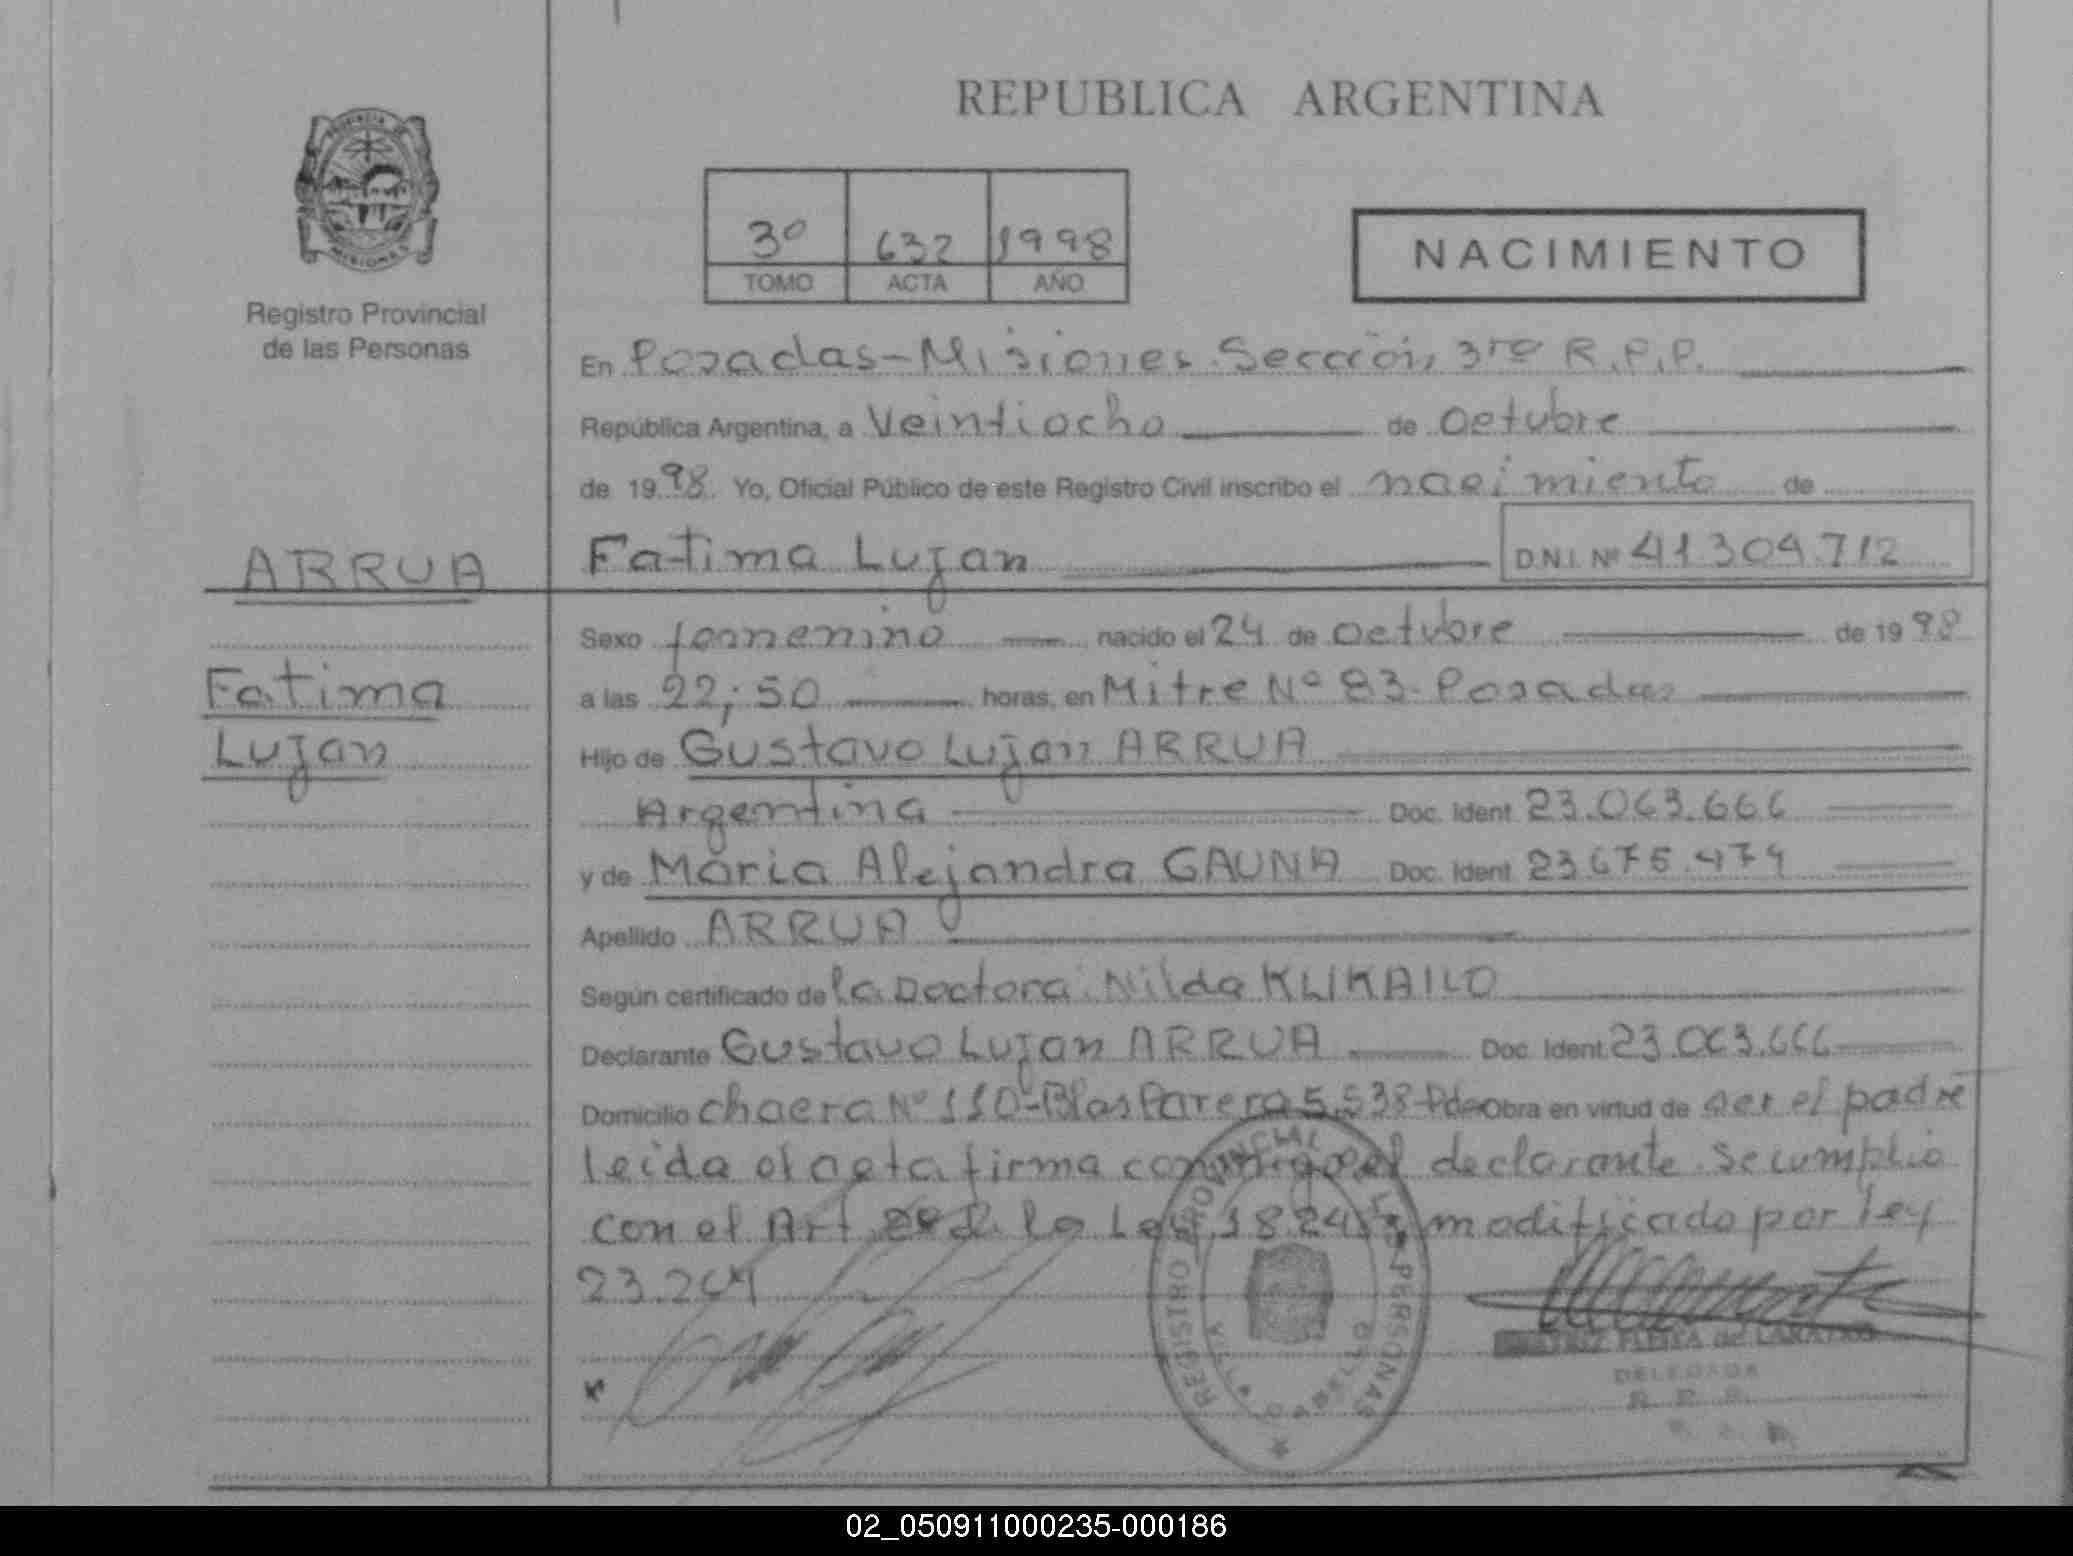 REPUBLICA ARGENTINA
PROVINCIA DE MISIONES
Registro Provincial
de las Personas
3º 632 1998
TOMO ACTA AÑO
NACIMIENTO
En Posadas-Misiones Sección 3ra R.P.P.
República Argentina, a Veintiocho de octubre
de 1998 Yo, Oficial Público de este Registro Civil inscribo el nacimiento de
ARRUA
Fatima Lujan D.N.I. Nº 41.304.712
Sexo femenino nacido el 24 de octubre de 1998
Fatima
a las 22;50 horas, en Mitre Nº 83-Posadas
Lujan
Hijo de Gustavo Lujan ARRUA
Argentina Doc. Ident. 23.063.666
y de Maria Alejandra GAUNA Doc. Ident. 23.675.474
Apellido ARRUA
Según certificado de la Doctora: Nilda KLIKAILO
Declarante Gustavo Lujan ARRUA Doc. Ident. 23.063.666
Domicilio chacra Nº 110-Blas Parera 5.538-Pdas Obra en virtud de ser el padre
leida el acta firma conmigo el declarante. Se cumplio
con el Art de la Ley 18.248 modificado por ley
23.264
REGISTRO PROVINCIAL DE LAS PERSONAS
DELEGADA
R. P. P.
02_050911000235-000186